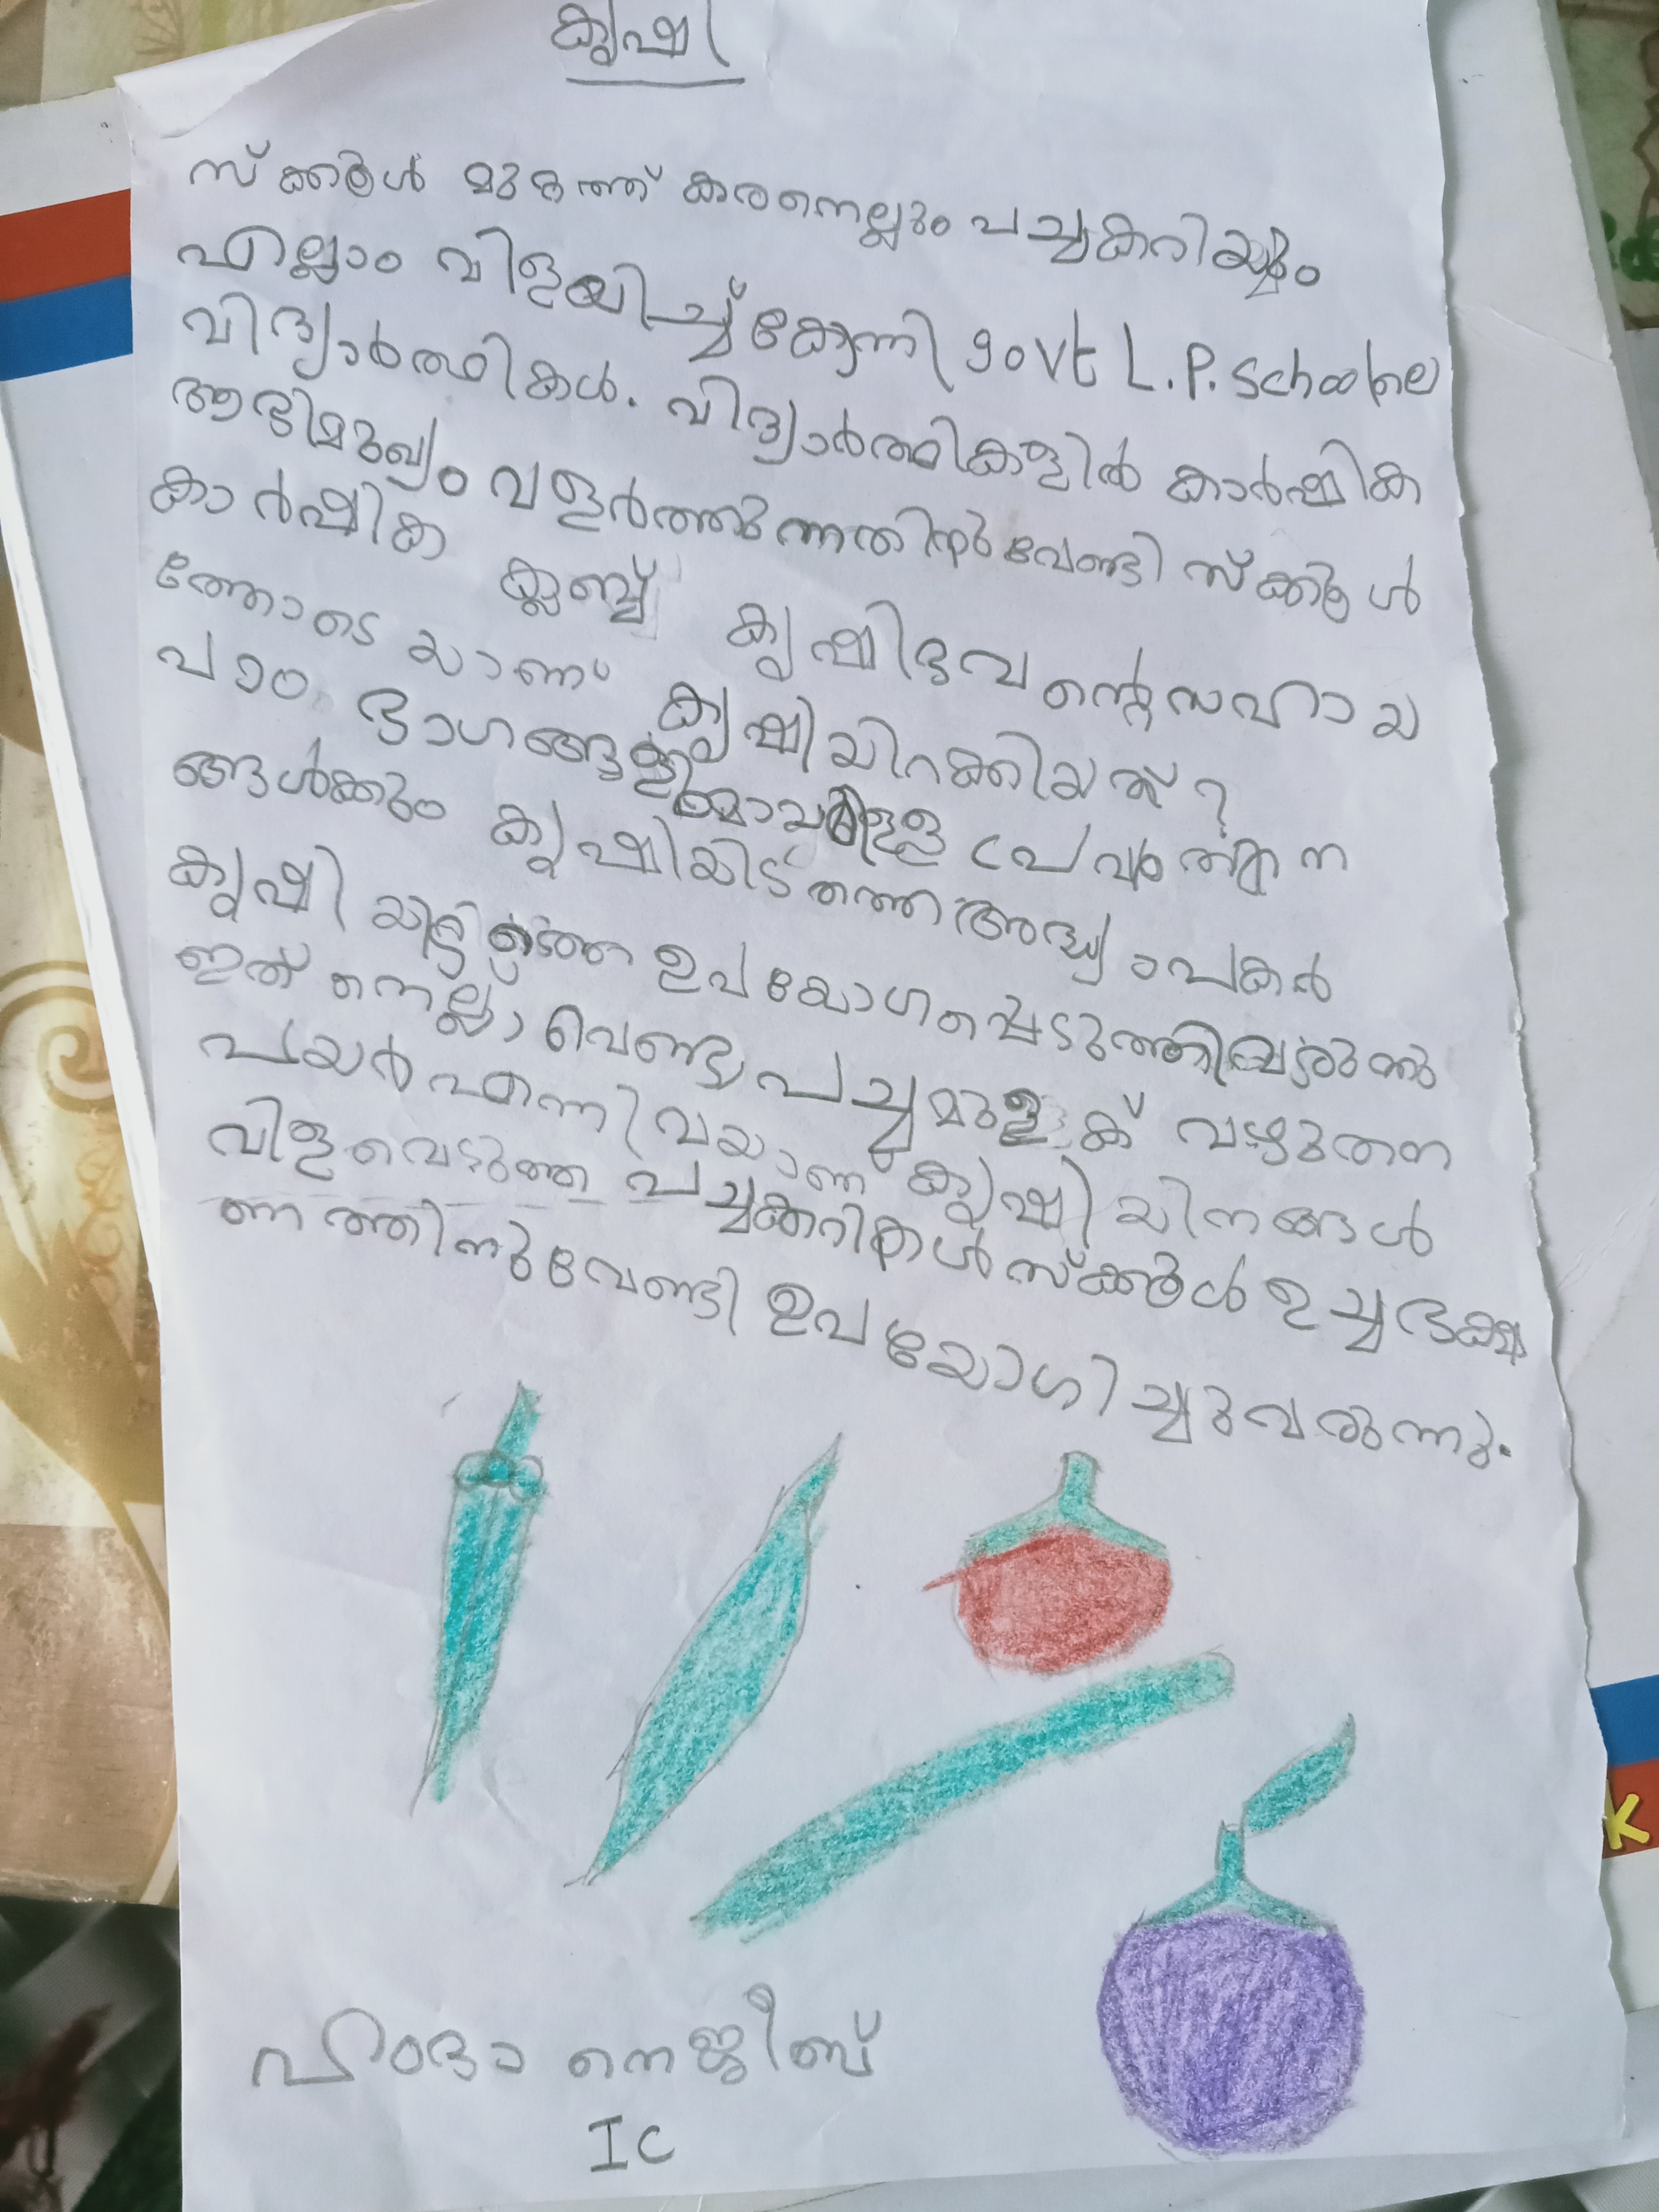 കൃഷി
സ്ക്കൂൾ മുറ്റത്ത് കരനെല്ലും പച്ചകറിയും
എല്ലാം വിളയിച്ച് കോന്നി govt L.P. Schoolലെ
വിദ്യാർത്ഥികൾ. വിദ്യാർത്ഥികളിൽ കാർഷിക
ആഭിമുഖ്യം വളർത്തുന്നതിനു വേണ്ടി സ്ക്കൂൾ
കാർഷിക ക്ലബ്ബ് കൃഷിഭവ ന്റെ സഹായ
ത്തോടെ യാണ് കൃഷിയിറക്കിയത്
പാഠ ഭാഗങ്ങളു മായുള്ള പ്രവർത്തന
ങ്ങൾക്കും കൃഷിയിട ത്തെ അദ്ധ്യാപകർ
കൃഷി ഉപയോഗപ്പെടുത്തി വരുന്നു
ഇത് നെല്ല്, വെണ്ട, പച്ചമുളക് വഴുതന
പയർ എന്നിവയാണ് കൃഷി യിനങ്ങൾ
വിളവെടുത്ത പച്ചക്കറികൾ സ്ക്കൂൾ ഉച്ച ഭക്ഷ
ണത്തിനു വേണ്ടി ഉപയോഗിച്ചു വരുന്നു.
ഹംദാ നെജീബ്
I C